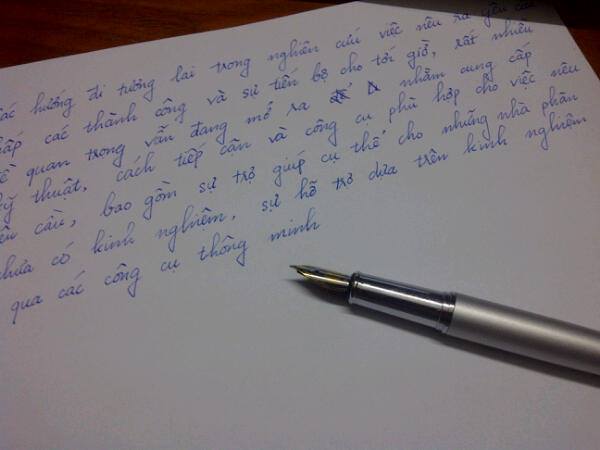 các hướng đi tương lai trong nghiên cứu việc nêu ra yêu cầu
cấp các thành công và sự tiến bộ cho tới giờ, rất nhiều
đề quan trọng vẫn đang mở ra để nhằm cung cấp
kỹ thuật, cách tiếp cận và công cụ phù hợp cho việc nêu
yêu cầu, bao gồm sự trợ giúp cụ thể cho những nhà phân
chưa có kinh nghiệm, sự hỗ trợ dựa trên kinh nghiệm
qua các công cụ thông minh